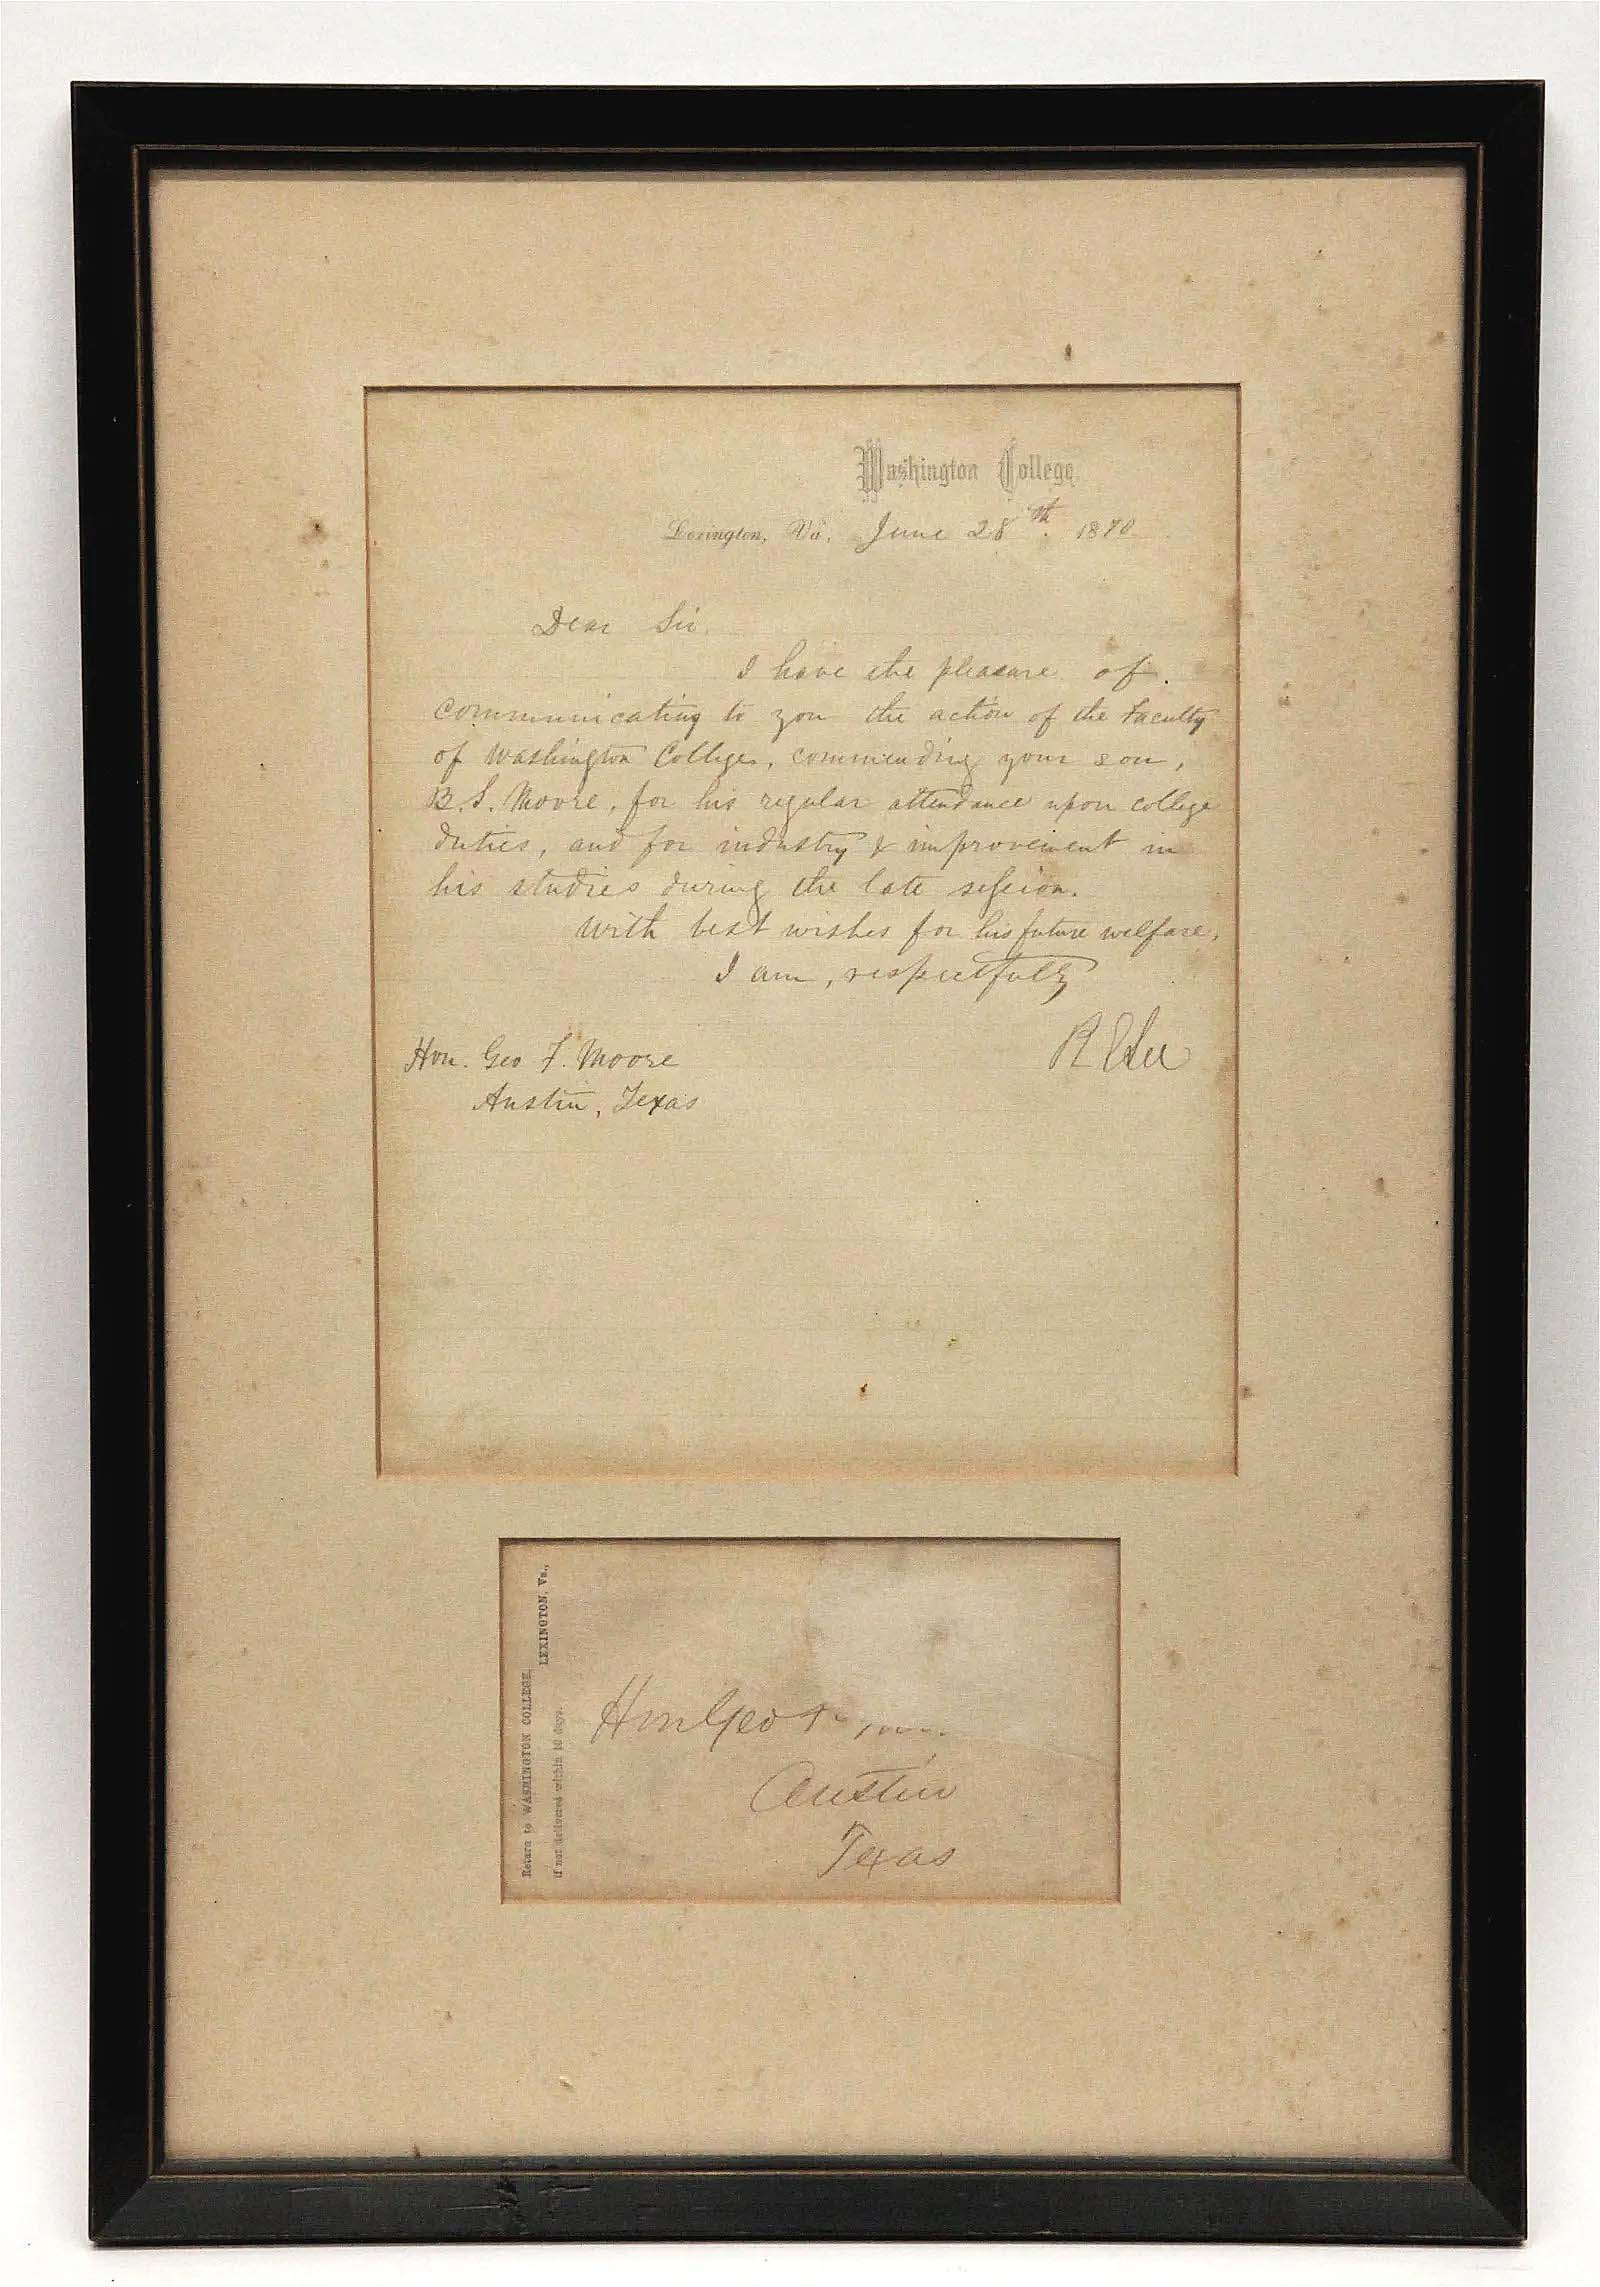 Washington College,
Lexington, Va. June 28th. 1870
Dear Sir,
I have the pleasure of
communicating to you the action of the Faculty
of Washington College, commending your son,
B. S. Moore, for his regular attendance upon college
duties, and for industry & improvement in
his studies during the late session.
With best wishes for his future welfare,
I am, respectfully
R E Lee
Hon. Geo F. Moore
Austin, Texas
Return to WASHINGTON COLLEGE,
LEXINGTON, Va.,
if not delivered within 10 days.
Hon Geo
Austin
Texas